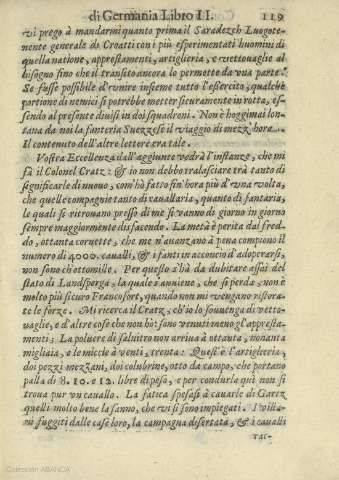 di Germania Libro II. 119
vi prego à mandarmi quanto prima il Saradezeh Luogote-
nente generale di Croatti con i più esperimentati huomini di
quella natione, apprestamenti, artiglieria, e vettouaglie al
bisogno sino che il transito ancora lo permetta da vna parte.
Se fusse possibile d'vnire insieme tutto l'essercito, qualche
portione di nemici si potrebbe metter sicuramente in rotta, es-
sendo al presente diuisi in doi squadroni. Non è hoggimai lon-
tana da noi la fanteria Suezzese il viaggio di mezz'hora.
Il contenuto dell'altre lettere era tale.
Vostra Eccellenza dall'aggiunte vedrà l'instanze, che mi
fà il Colonel Cratz: & io non debbo tralasciare trà tanto di
significarle di nuouo, com'hò fatto sin'hora più d'vna volta,
che quelle compagnie tanto di cauallaria, quanto di fantaria,
le quali si ritrouano presso di me si vanno di giorno in giorno
sempre maggiormente disfacendo. La metà è perita dal fred-
do, ottanta cornette, che me n'auanzano à pena compiono il
numero di 4000. caualli, & i fanti in acconcio d'adoperarsi,
non sono ch'ottomille. Per questo s'hà da dubitare assai del
stato di Landsperga, la quale s'auuiene, che si perda, non è
molto più sicuro Francofort, quando non mi vengano ristora-
te le forze. Mi ricerca il Cratz, ch'io lo souuenga di vetto-
uaglie, e d'altre cose che non hò: sono venuti meno gl'appresta-
menti; La poluere di salnitro non arriua à ottanta, nonanta
migliaia, e le miccie à venti, trenta: Quest'è l'artiglieria,
doi pezzi mezzani, doi colubrine, otto da campo, che portano
palla di 8. 10. e 12. libre di peso, e per condurla quì non si
troua pur vn cauallo. La fatica spesasi à cauarle di Gartz
quelli molto bene la sanno, che vi si sono impiegati. I villa-
ni fuggiti dalle case loro, la campagna desertata, & i caualli
rac-
Colección ABANCA